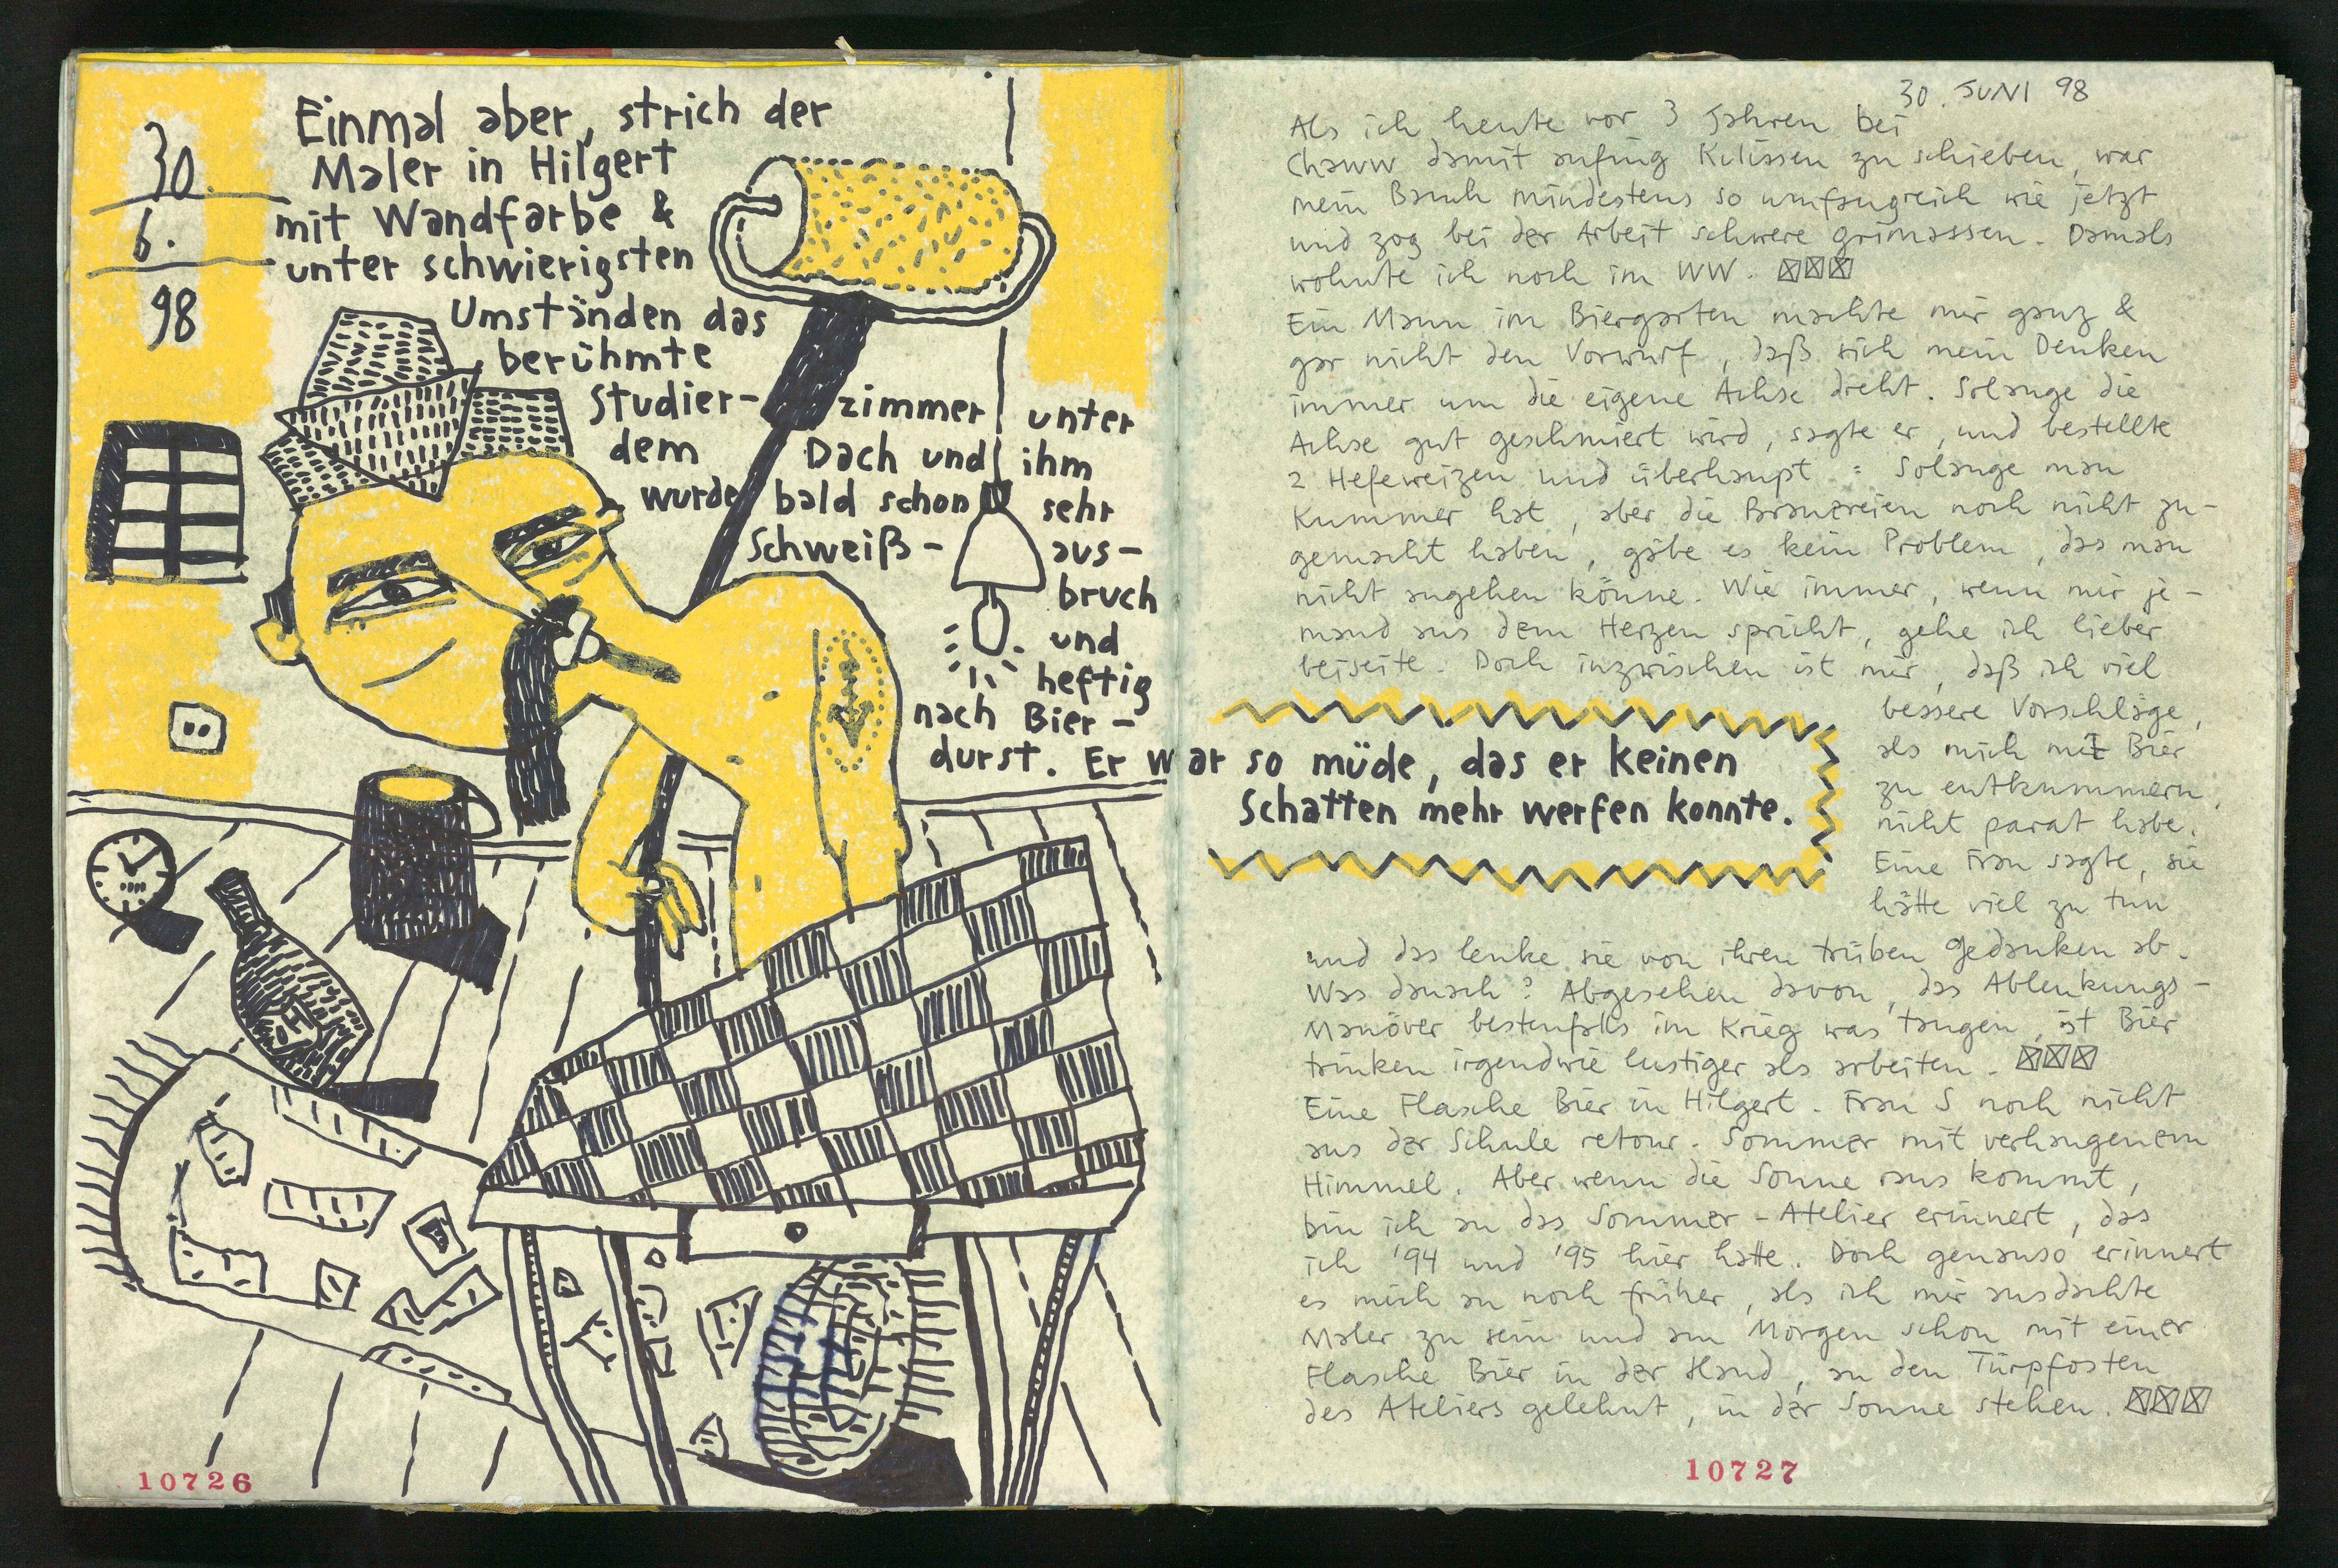 30.
6.
98
Einmal aber, strich der
Maler in Hilgert
mit Wandfarbe &
unter schwierigsten
Umständen das
berühmte
Studier- zimmer unter
dem Dach und ihm
wurde bald schon sehr
Schweiß- aus-
bruch
und
heftig
nach Bier-
durst. Er war so müde, das er keinen
Schatten mehr werfen konnte.
10726
30. JUNI 98
Als ich heute vor 3 Jahren bei
Chaww damit anfing Kulissen zu schieben, war
mein Bauch mindestens so umfangreich wie jetzt
und zog bei der Arbeit schwere Grimassen. Damals
wohnte ich noch im WW.
Ein Mann im Biergarten machte mir ganz &
gar nicht den Vorwurf, daß sich mein Denken
immer um die eigene Achse dreht. Solange die
Achse gut geschmiert wird, sagte er, und bestellte
2 Hefeweizen und überhaupt : Solange man
Kummer hat, aber die Brauereien noch nicht zu-
gemacht haben, gäbe es kein Problem, das man
nicht angehen könne. Wie immer, wenn mir je-
mand aus dem Herzen spricht, gehe ich lieber
beiseite. Doch inzwischen ist mir, daß ich viel
bessere Vorschläge,
als mich mit Bier
zu entkummern,
nicht parat habe.
Eine Frau sagte, sie
hätte viel zu tun
und das lenke sie von ihren trüben Gedanken ab.
Was danach? Abgesehen davon, das Ablenkungs-
Manöver bestenfalls im Krieg was taugen, ist Bier
trinken irgendwie lustiger als arbeiten.
Eine Flasche Bier in Hilgert. Frau S noch nicht
aus der Schule retour. Sommer mit verhangenem
Himmel. Aber wenn die Sonne raus kommt,
bin ich an das Sommer-Atelier erinnert, das
ich '94 und '95 hier hatte. Doch genauso erinnert
es mich an noch früher, als ich mir ausdachte
Maler zu sein und am Morgen schon mit einer
Flasche Bier in der Hand, an den Türpfosten
des Ateliers gelehnt, in der Sonne stehen.
10727